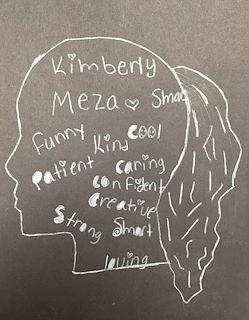 Kimberly
Meza Smart
Funny Kind Cool
Patient Caring
Confident
Creative
Strong Smart
loving